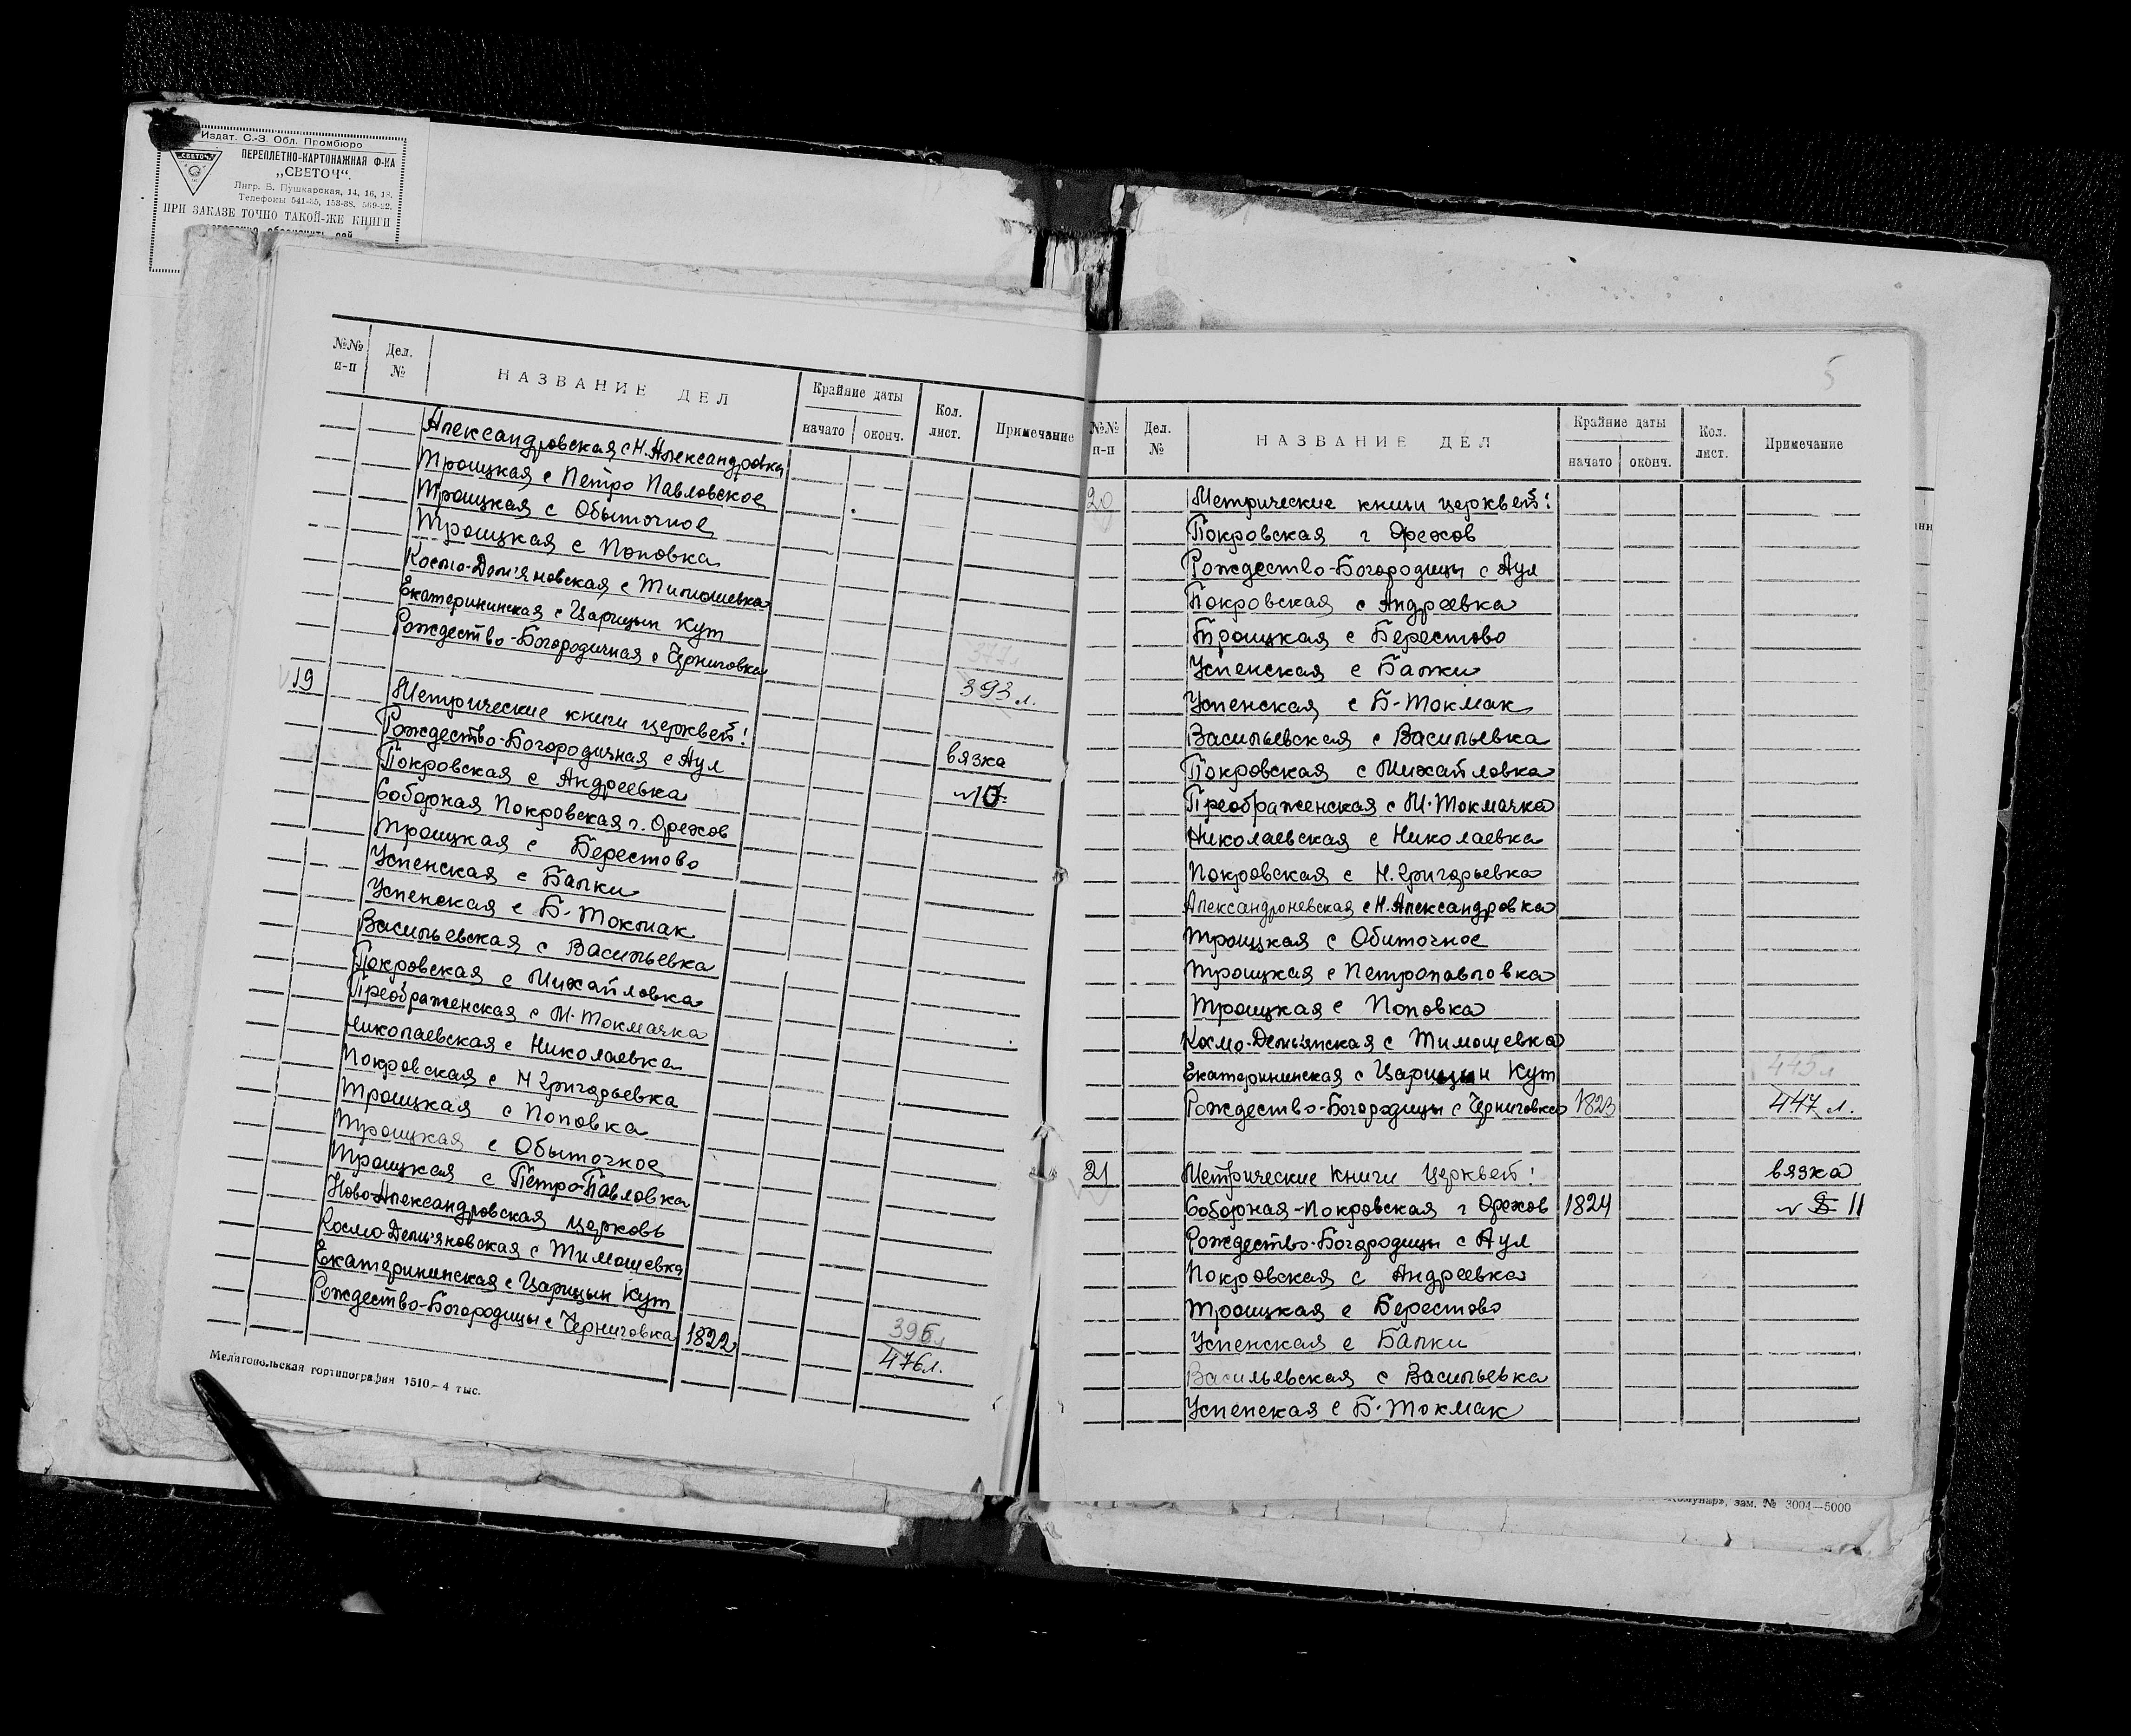 Издат. С.-З. Обл. Промбюро
"СВЕТОЧ"
ПЕРЕПЛЕТНО-КАРТОНАЖНАЯ Ф-КА
„СВЕТОЧ“.
Лнгр. Б. Пушкарская, 14, 16, 18.
Телефоны 541-35, 153-38, 569-22.
ПРИ ЗАКАЗЕ ТОЧНО ТАКОЙ-ЖЕ КНИГИ
№№ п-п Дел. № НАЗВАНИЕ ДЕЛ Крайние даты начато оконч. Кол. лист. Примечание
Александровская с Н. Александровка
Троицкая с Петро Павловское
Троицкая с Обыточное
Троицкая с Поповка
Космо-Дем'яновская с Тимошевка
Екатерининская с Царицын Кут
Рождество-Богородичная с Черниговка 377л
393 л.
19 Метрические книги церквей:
Рождество-Богородичная с Аул вязка
Покровская с Андреевка №10
Соборная Покровская г. Орехов
Троицкая с Берестово
Успенская с Балки
Успенская с Б-Токмак
Васильевская с Васильевка
Покровская с Михайловка
Преображенская с М. Токмачка
Николаевская с Николаевка
Покровская с Н Григорьевка
Троицкая с Поповка
Троицкая с Обыточное
Троицкая с Петро-Павловка
Ново-Александровская церковь
Космо Дем'яновская с Тимошевка
Екатерининская с Царицын Кут
Рождество-Богородицы с Черниговка 1822 395л
476л.
Мелитопольская гортипография 1510—4 тыс.
5
№№ п-п Дел. № НАЗВАНИЕ ДЕЛ Крайние даты начато оконч. Кол. лист. Примечание
20 Метрические книги церквей:
Покровская г Орехов
Рождество-Богородицы с Аул
Покровская с Андреевка
Троицкая с Берестово
Успенская с Балки
Успенская с Б-Токмак
Васильевская с Васильевка
Покровская с Михайловка
Преображенская с М. Токмачка
Николаевская с Николаевка
Покровская с Н. Григорьевка
Александроневская с Н. Александровка
Троицкая с Обиточное
Троицкая с Петропавловка
Троицкая с Поповка
Космо-Демьянская с Тимошевка
Екатерининская с Царицын Кут 445л
Рождество-Богородицы с Черниговка 1823 447 л.
21 Метрические Книги Церквей: вязка
Соборная-Покровская г Орехов 1824 № 11
Рождество-Богородицы с Аул
Покровская с Андреевка
Троицкая с Берестово
Успенская с Балки
Васильевская с Васильевка
Успенская с Б. Токмак
зам. № 3004—5000